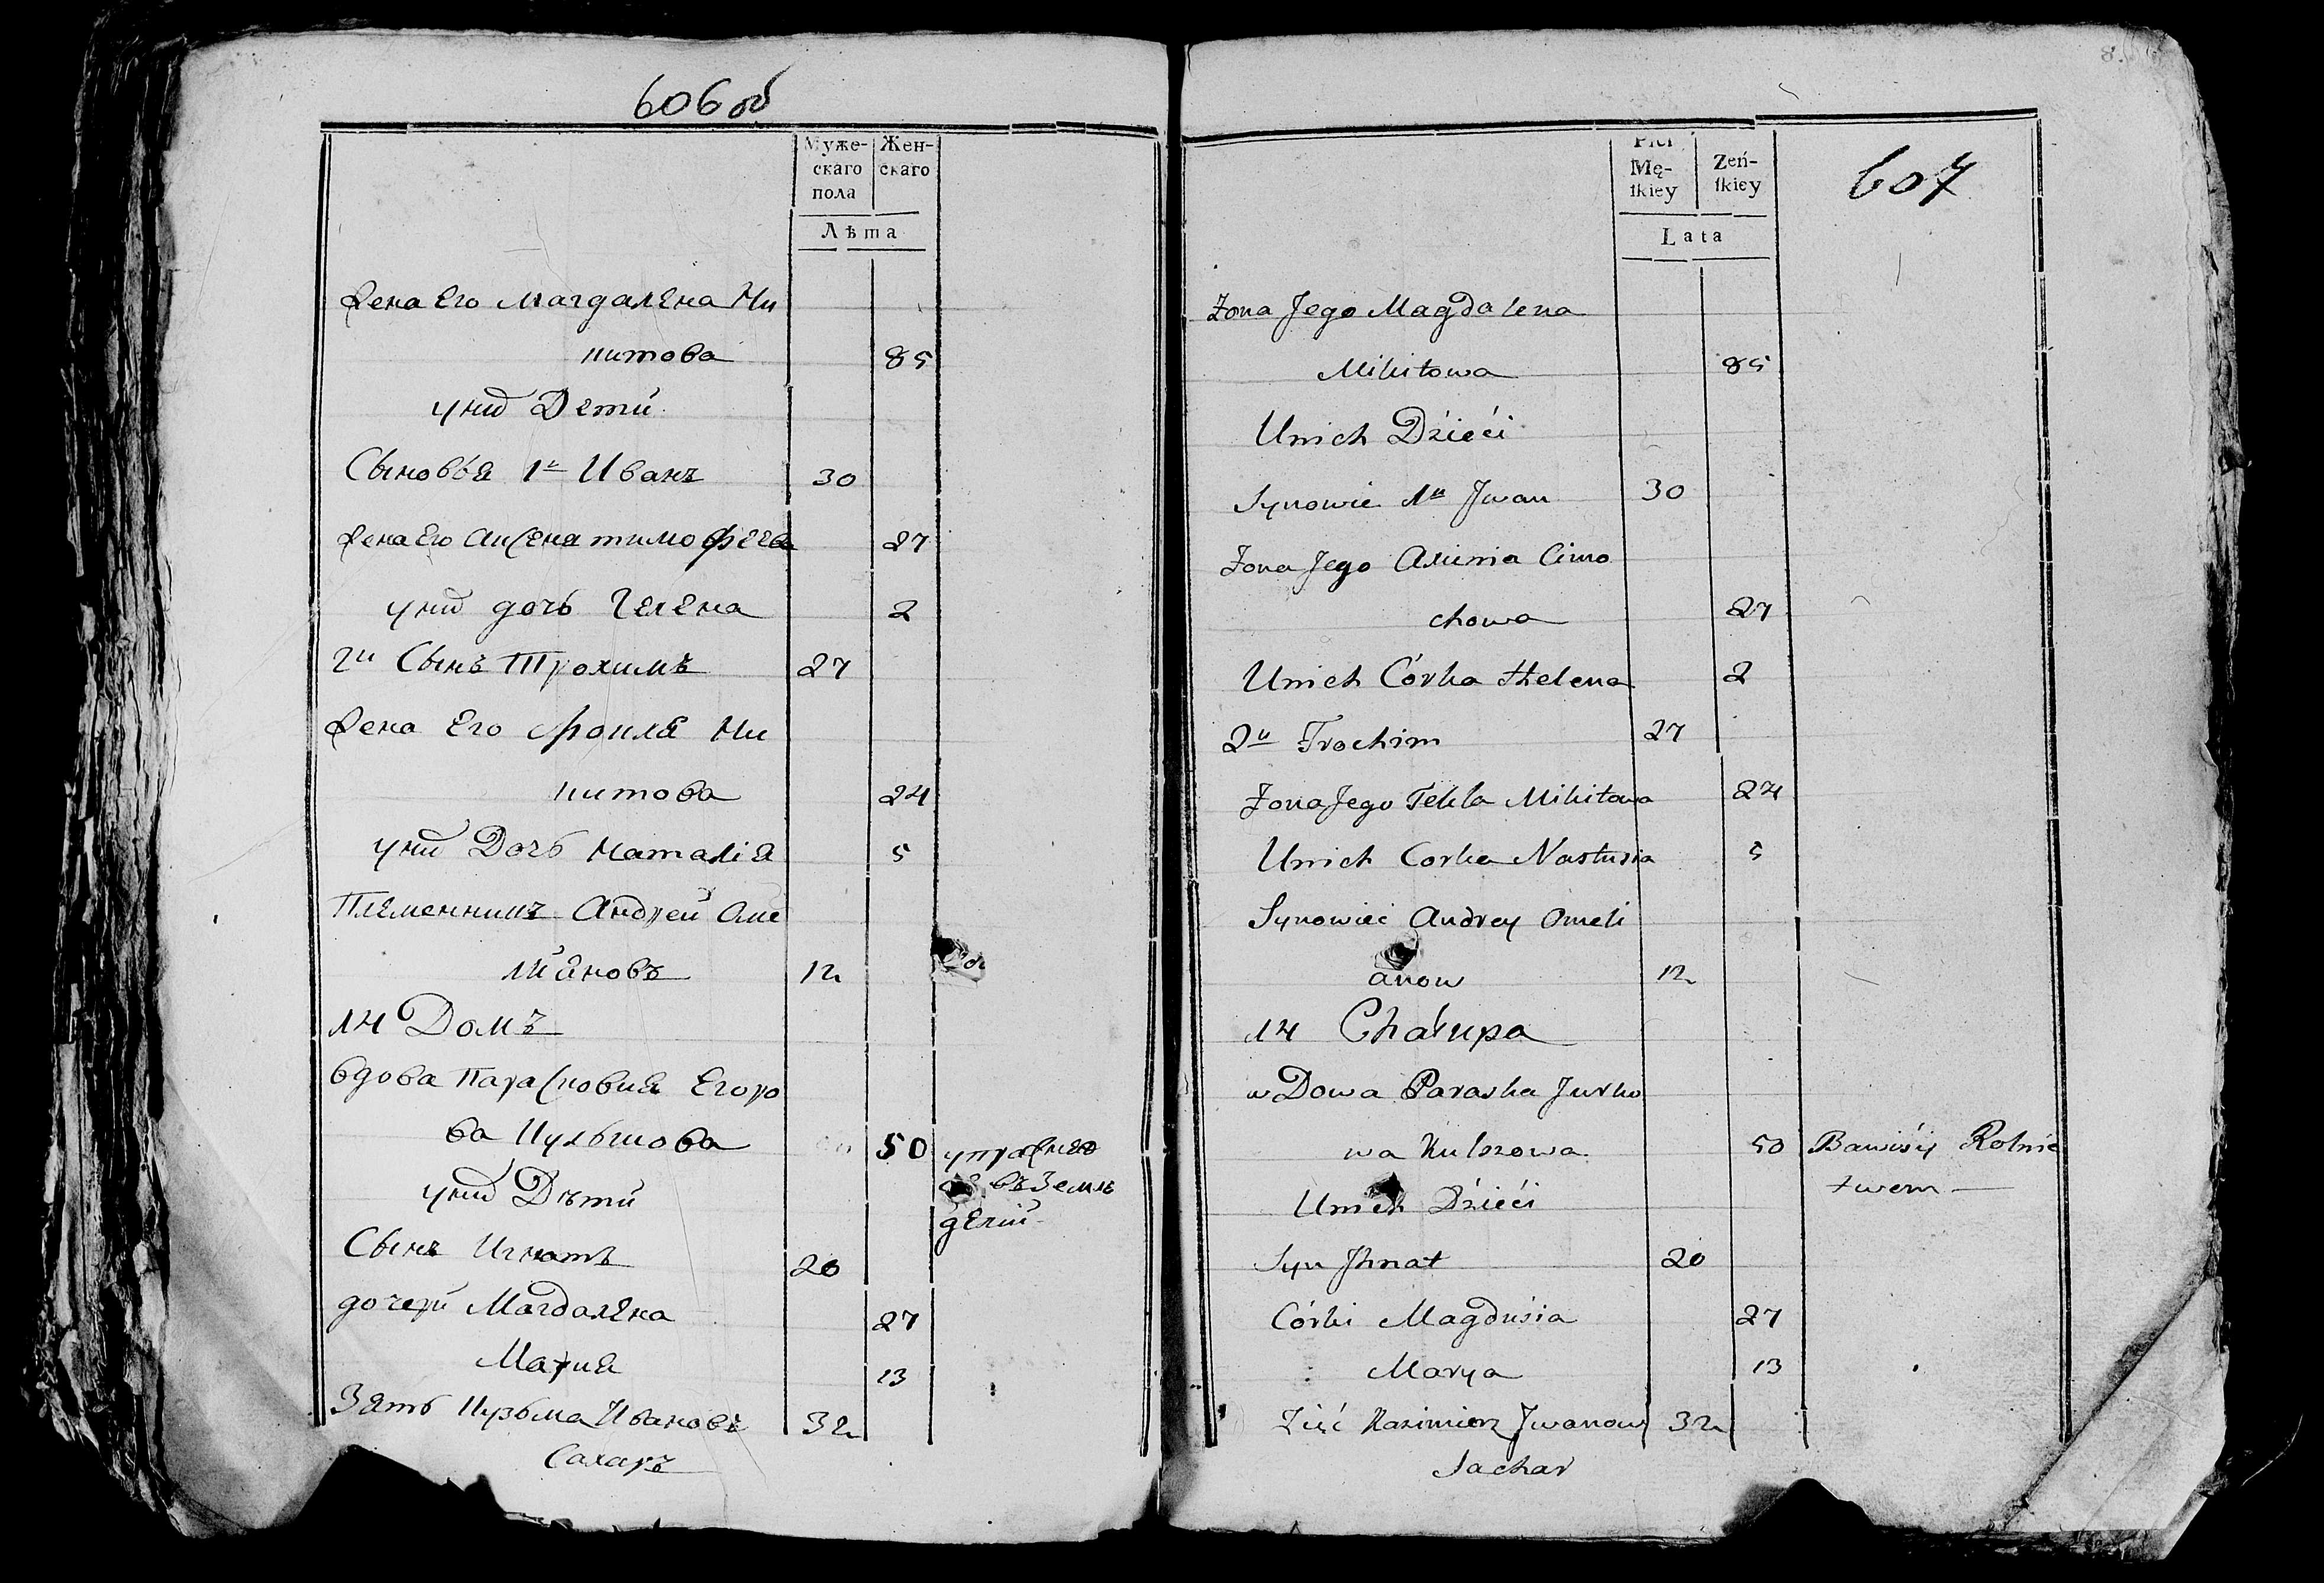 606 об
Мужескаго пола
Женскаго
Лѣта
Жена Его Магдалена Ми
китова 85
у них Дети
Сыновья 1й Иванъ 30
Жена Его Аксеня тимофеева 27
у них дочь Гелена 2
2й Сынъ Трохимъ 27
Жена Его Фокля Ми
китова 24
у них Дочь Наталія 5
Племенникъ Андрей Оме
ліяновъ 12
14 Домъ
Вдова Парасковия Егоро
ва Кульшова 50 упражняе
въ Земле
у них Дѣти делии
Сынъ Игнатъ 20
дочери Магдалена 27
Мария 13
Зять Кузьма Ивановъ 32
Сахаръ
Płci
Mę-
ſkiey
Żeń-
ſkiey
607
Lata
Żona Jego Magdalena
Mikitowa 85
Unich Dzieći
Synowie 1y Jwan 30
Żona Jego Axienia Cimo
chowa 27
Unich Córka Helena 2
2y Trochim 27
Żona Jego Tekla Mikitowa 24
Unich Corka Nastusia 5
Synowiec Andrey Omeli
anow 12
14 Chałupa
wDowa Paraska Jurko
wa Kulszowa 50 Bawiśiy Rolnic
twem
Unich Dzieći
Syn Jhnat 20
Córki Magdusia 27
Marya 13
Zięć Kazimierz Jwanow 32
Sachar